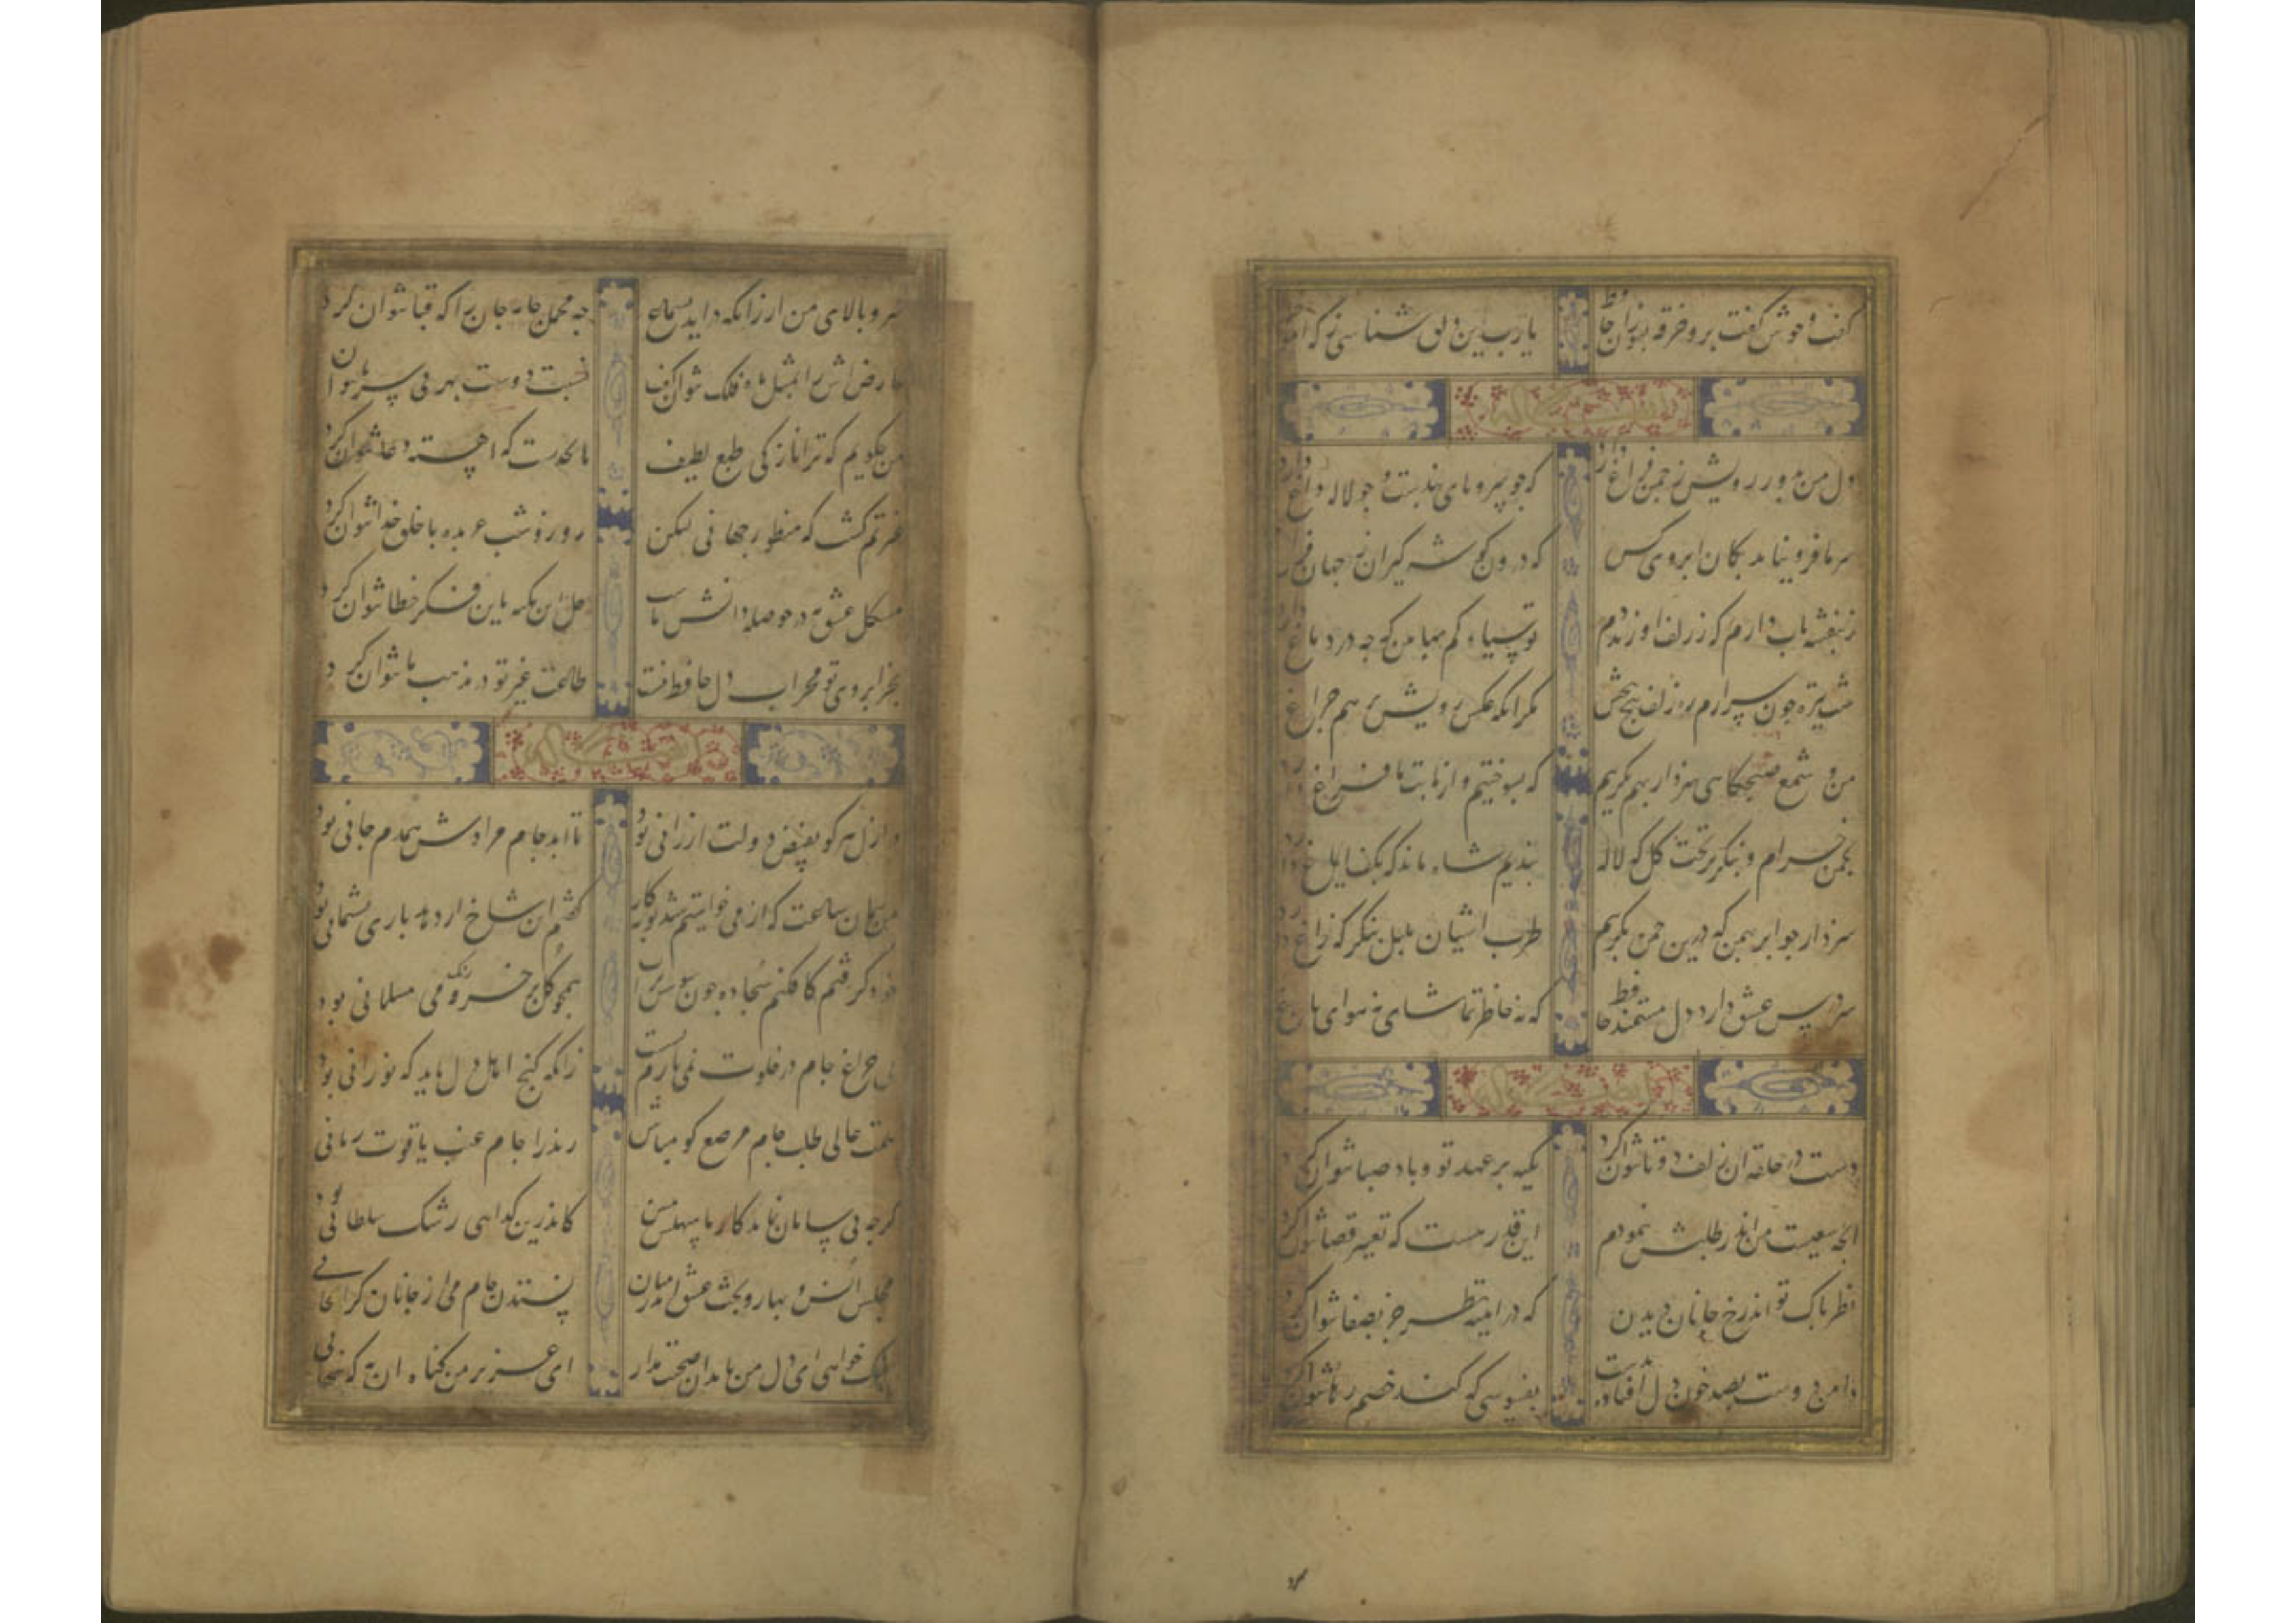 گفت و خوش گفت برو خرقه بسوزان حافظ یارب این قلب شناسی ز که آموخته
دل من بدور رویش ز چمن فراغ دارد که جو سرو پای بندست و جو لاله داغ دارد
سر ما فرو نیاید بکمان ابروی کس که درون گوشه گیران ز جهان فراغ دارد
ز بنفشه تاب دارم که ز زلف او زند دم تو سیاه کم بها بین که جه در دماغ دارد
شب تیره جون سر آرم ره زلف مکر آنکه عکس رویش برهم جراغ
من و شمع صبحکاهی سزد ار بهم بکرییم که بسوختیم و از ما بت ما فراغ دارد
بجمن خرام و بنکر بر تخت کل که لاله بندیم شاه ماند که بکف ایاغ دارد
سزد ار جو ابر بهمن که درین جمن بکرییم طرب آشیان بلبل بنکر که زاغ دارد
سر درس عشق دارد دل مستمند حافظ که نه خاطر تماشا نه هوای باغ
دست در حلقه آن زلف دوتا نتوان کرد تکیه بر عهد تو و باد صبا نتوان کرد
آنجه سعیست من اندر طلبش بنمودم این قدر هست که تغییر قضا نتوان کرد
نظر پاک تواند رخ جانان دیدن که در آیینه نظر جز بصفا نتوان کرد
دامن دوست بصد خون دل افتاد بدست بفسوسی که کند خصم رها نتوان کرد
سرو بالای من ارزانکه درآید بسماع جه محل جامه جان را که قبا نتوان کرد
عارضش را بمثل ماه فلک نتوان کفت نسبت دوست بهر بی سر و پا نتوان
من جکویم که ترا نازکی طبع لطیف تا بحدیست که آهسته دعا نتوان کرد
غیرتم کشت که منظور جهانی لیکن روز و شب عربده با خلق خدا نتوان کرد
مشکل عشق نه در حوصله دانش ماست حل این نکته باین فکر خطا نتوان کرد
بجز ابروی تو محراب دل حافظ نیست طاعت غیر تو در مذهب ما نتوان کرد
در ازل هرکو بفیض دولت ارزانی بود تا ابد جام مرادش همدم جانی بود
من همان ساعت که از می خواستم شد توبه کار کفتم این شاخ ار دهد باری پشیمانی بود
خود کرفتم کافکنم سجاده جون سوسن همجو کل بر خرقه رنک می مسلمانی بود
بی جراغ جام در خلوت نمی یارم نشست زانکه کنج اهل دل باید که نورانی بود
همت عالی طلب جام مرصع کو مباش رند را جام عنب یاقوت رمانی
کرجه بی سامان نماید کار ما سهلش مبین کاندرین کدایی رشک سلطانی بود
مجلس انس و بهار و بحث عشق اندر میان نستدن جام می از جانان کرانجانی
نیک خواهی ای دل من با بدان صحبت مدار ای عزیز من کناه آن به که پنهانی